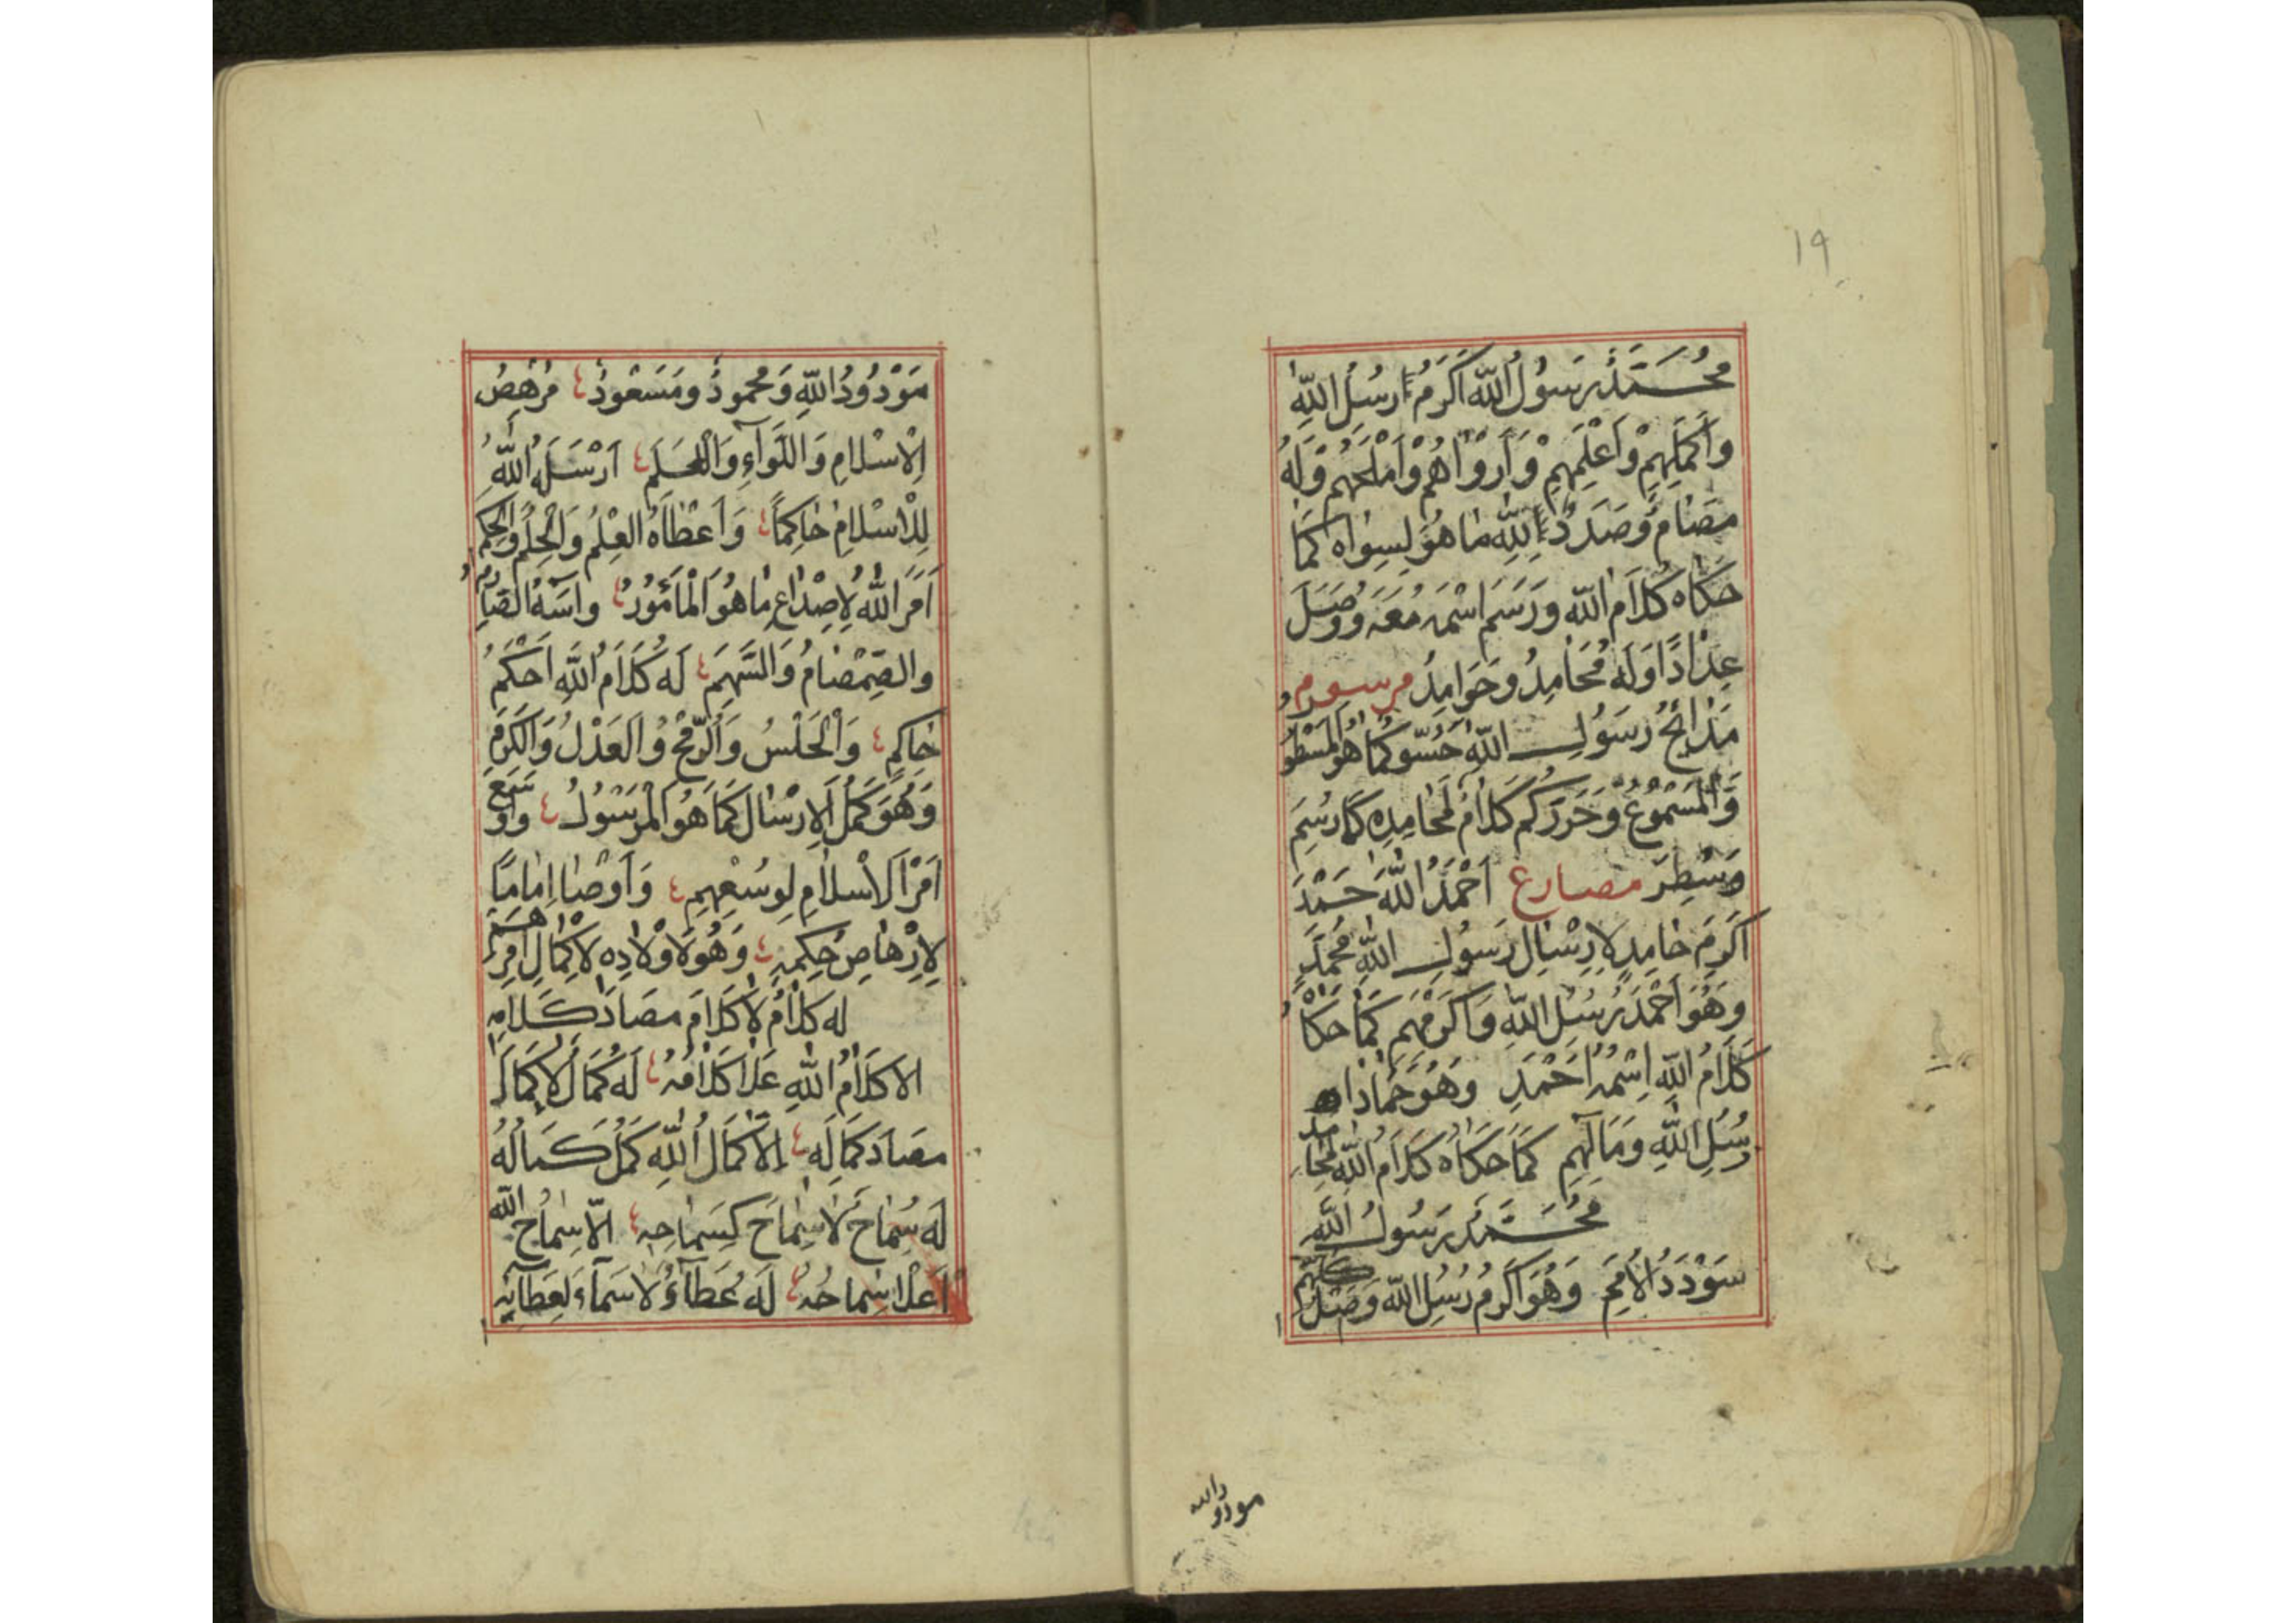 ١٩
مُحَمَّدٌ رَسُولُ اللّٰهِ اَكْرَمُ رُسُلِ اللّٰهِ
وَاَكْمَلِهِمْ وَاَعْلَمِهِمْ وَاَرْوَاهُمْ وَاَمْلَحِهِمْ وَلَهُ
مَصَامٌ وَصَدَدٌ لِلّٰهِ مَا هُوَ لِسِوَاهُ كَمَا
حَكَاهُ كَلَامُ اللّٰهِ وَرَسَمَ اسْمَهُ مَعَهُ وَوَصَلَ
عِدَادًا وَلَهُ مَحَامِدُ وَحَوَامِدُ مرسوم
مَدَائِحُ رَسُولِ اللّٰهِ كَمَا هُوَ الْمَسْطُورُ
وَالْمَسْمُوعُ وَحَرَّرَكُم كَلَامُ مَحَامِدِهِ كَمَا رُسِمَ
وَسُطِرَ مصارع اَحْمَدُ اللّٰهَ حَمْدَ
اَكْرَمَ حَامِدٍ لِاِرْسَالِ رَسُولِ اللّٰهِ مُحَمَّدٍ
وَهُوَ اَحْمَدُ رُسُلِ اللّٰهِ وَاَكْرَمُهُم كَمَا حَكَاهُ
كَلَامُ اللّٰهِ اِسْمُهُ اَحْمَدُ وَهُوَ
رُسُلِ اللّٰهِ وَمَآلِهِمِ كَمَا حَكَاهُ كَلَامُ اللّٰهِ لِمَحَامِدِ
مُحَمَّدٌ رَسُولُ اللّٰهِ
سَوْدَدُ الْاُمَمِ وَهُوَ اَكْرَمُ رُسُلِ اللّٰهِ وَصَدْرُ كُلِّهِم
مودود الله
مَوْدُودُ اللّٰهِ وَمَحْمُودٌ وَمَسْعُودٌ مُرْهِصُ
الْاِسْلَامِ وَاللِّوَآءِ وَالْعَلَمِ اَرْسَلَهُ اللّٰهُ
لِلْاِسْلَامِ حَاكِمًا وَاَعْطَاهُ الْعِلْمُ وَالْحِلْمُ وَالْحِكَمُ
اَمَرَ اللّٰهُ لِاِصْدَاعِ مَا هُوَ الْمَأْمُورُ وَاسَهُ الصَّارِمُ
وَالصَّمْصَامُ وَالسَّهْمِ لَهُ كَلَامُ اللّٰهِ اَحْكَمُ
حَاكِمٍ وَالْحَلْسُ وَالرُّمْحُ وَالْعَدْلُ وَالْكَرَمِ
وَهُوَ كَمَّلَ الْاِرْسَالَ كَمَا هُوَ الْمُرْسُولُ وَاَوْسَعَ
اَمْرَ الْاِسْلَامِ لِوُسْعِهِمْ وَاَوْصَا اِمَامًا
لِاِرْهَاصِ حِكَمِهِ وَهُوَ لِاَوْلَادِهِ لِاِكْمَالِ اَمْرِهِمْ
لَهُ كَلَامٌ لَا كَلَامَ مصَادَ كَلَامِهِ
اِلَّا كَلَامُ اللّٰهِ عَلَا كَلَامُهُ لَهُ كَمَالٌ لَا كَمَالَ
مصَادَ كَمَالِهِ اِلَّا كَمَالُ اللّٰهِ كَمُلَ كَمَالُهُ
لَهُ سَمَاحٌ لَا سَمَاحَ كَسَمَاحِهِ اِلَّا سَمَاحُ اللّٰهِ
اَعْلَا سَمَاحُهُ لَهُ عَطَآءٌ لَا سَمَآءَ لِعَطَآئِهِ